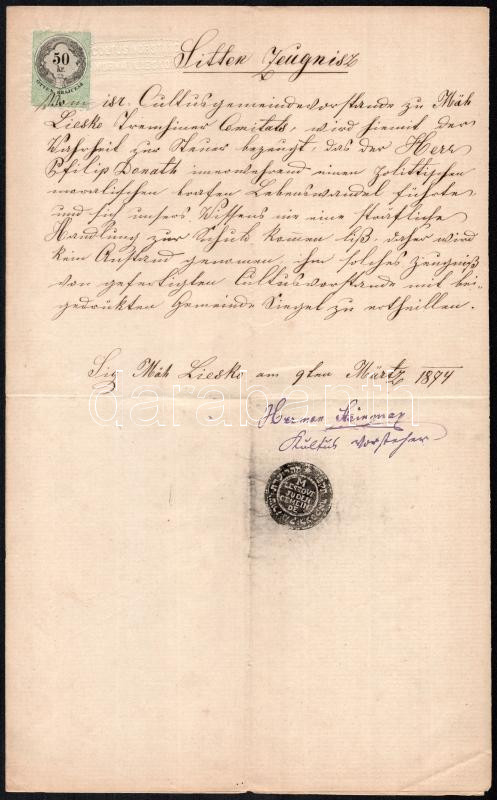 50
kr.
Sitten Zeugnisz
Vom isr. Cultusgemeindevorstande zu Mäh
Lieskó Trenchiner Comitats, wird hiemit der
Wahrheit zur Steuer bezeugt, das der Herr
Philip Donath imerwehrend einen politischen
moralischen brafen Lebenswandel führte
und sich unsers Wissens nie eine sträfliche
Handlung zur Schuld kommen liß, daher wird
kein Anstand genomen, ihm solches Zeugniß
von gefertigten Cultusvorstande mit bei-
gedrükten Gemeinde Siegel zu ertheillen.
Sig Mäh Lieskó am 9ten Märtz 1874
Herman
Kultus Vorsteher
M
LESSOVE
JUDEN
GEMEIN
DE
darabanth